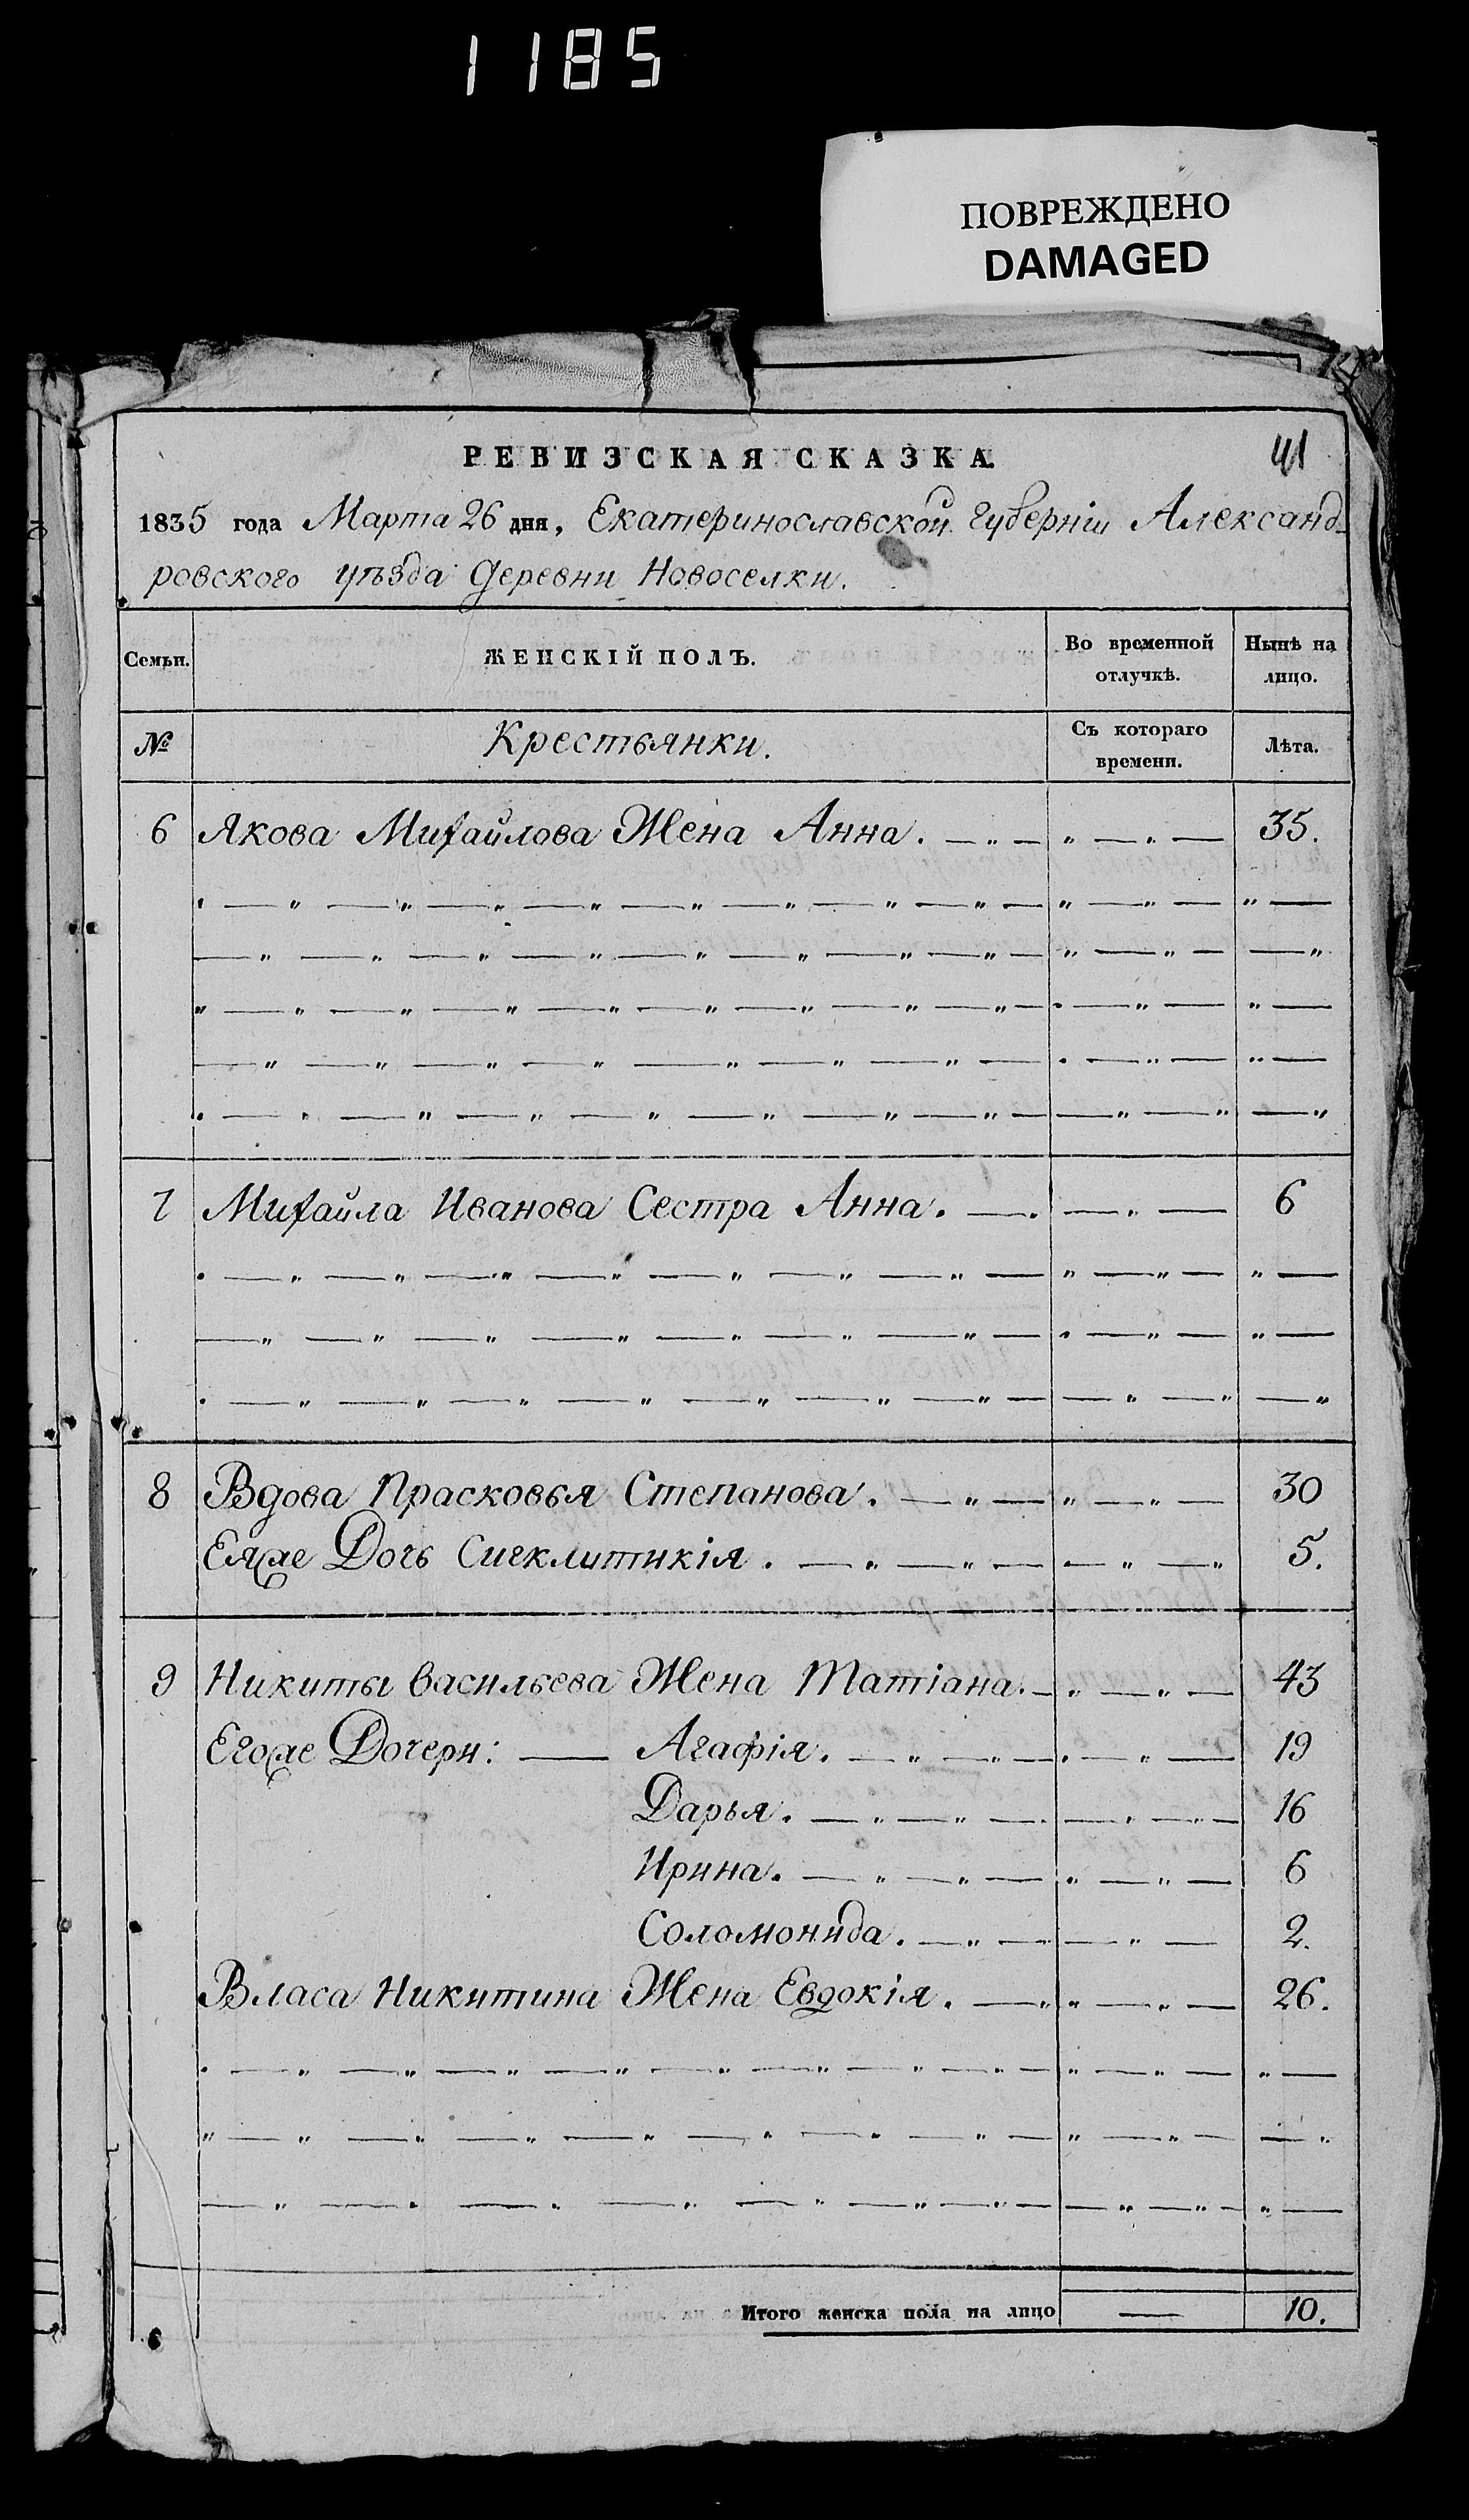 1185
ПОВРЕЖДЕНО
DAMAGED
РЕВИЗСКАЯ СКАЗКА.
41
1835 года Марта 26 дня, Екатеринославской губерніи Александ-
ровского уѣзда деревни Новоселки.
Семьи.
ЖЕНСКІЙ ПОЛЪ.
Во временной
отлучкѣ.
Нынѣ на
лицо.
№
Крестьянки.
Съ котораго
времени.
Лѣта.
6 Якова Михайлова Жена Анна. 35.
7 Михайла Иванова Сестра Анна. 6
8 Вдова Прасковья Степанова. 30
Еяже Дочь Сигклитикія. 5.
9 Никиты Васильева Жена Татіана. 43
Егоже Дочери: — Агафія. 19
Дарья. 16
Ирина. 6
Соломонида. 2.
Власа Никитина Жена Евдокія. 26.
Итого женска пола на лицо — 10.